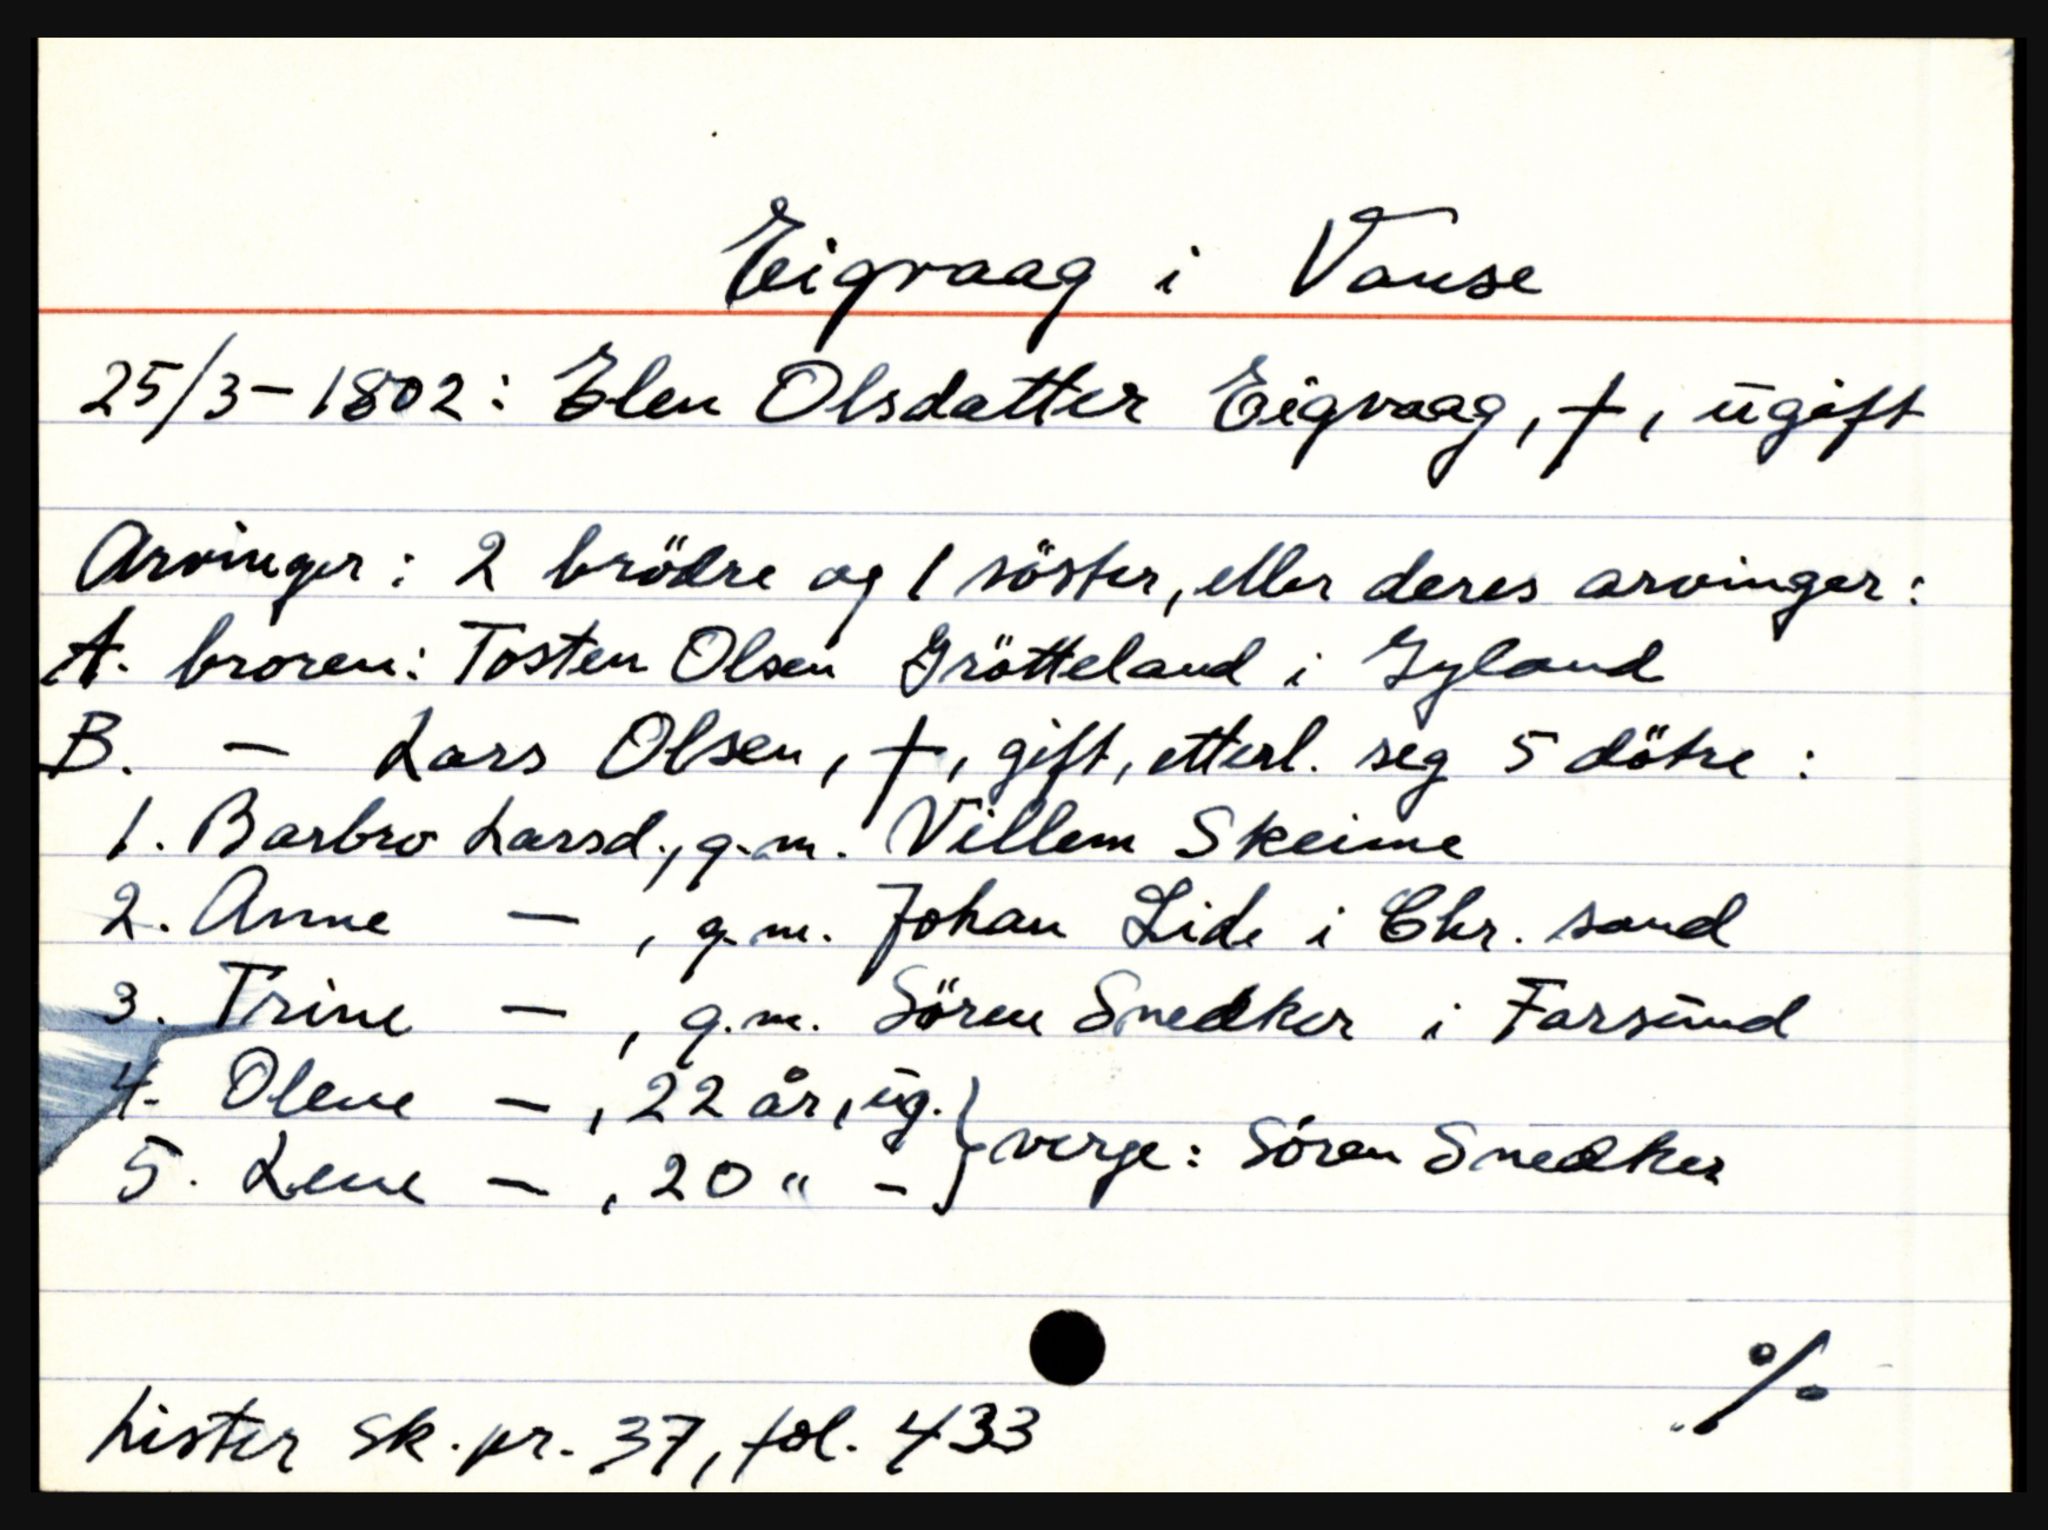 Eigvaag i Vanse
25/3-1802: Elen Olsdatter Eigvaag, †, ugift
Arvinger: 2 brödre og 1 söster, eller deres arvinger:
A. broren: Tosten Olsen Grötteland i Gyland
B. — Lars Olsen, †, gift, etterl. seg 5 dötre:
1. Barbro Larsd., g.m. Villem Skeime
2. Anne — , g.m. Johan Lide i Chr. sand
3. Trine — , g.m. Sören Snedker i Farsund
4. Olene — , 22 år, ug. } verge: Sören Snedker
5. Lene — , 20 " -
%
Lister sk.pr. 37, fol. 433